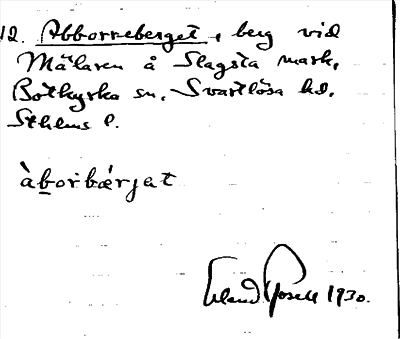 12. Abborreberget, berg vid
Mälaren å Slagsta mark,
Botkyrka sn. Svartlösa hd.
Sthlms l.
àborbærjat
Erland Rosell 1930.